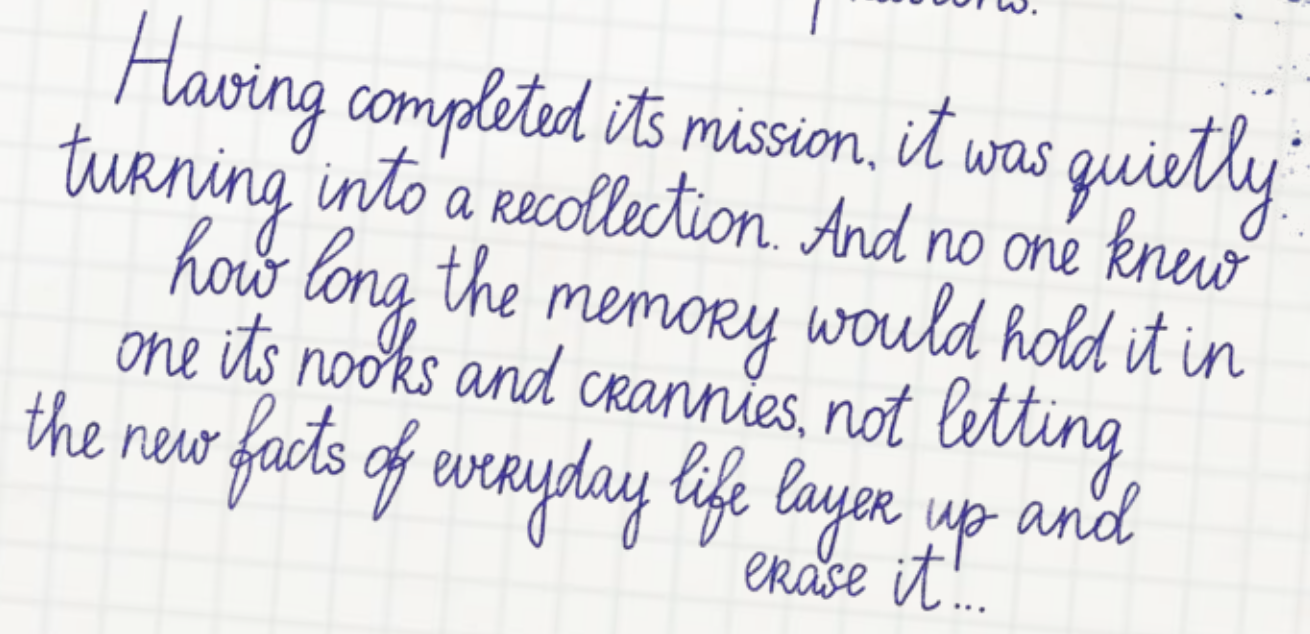 Having completed its mission, it was quietly
turning into a recollection. And no one knew
how long the memory would hold it in
one its nooks and crannies, not letting
the new facts of everyday life layer up and
erase it...